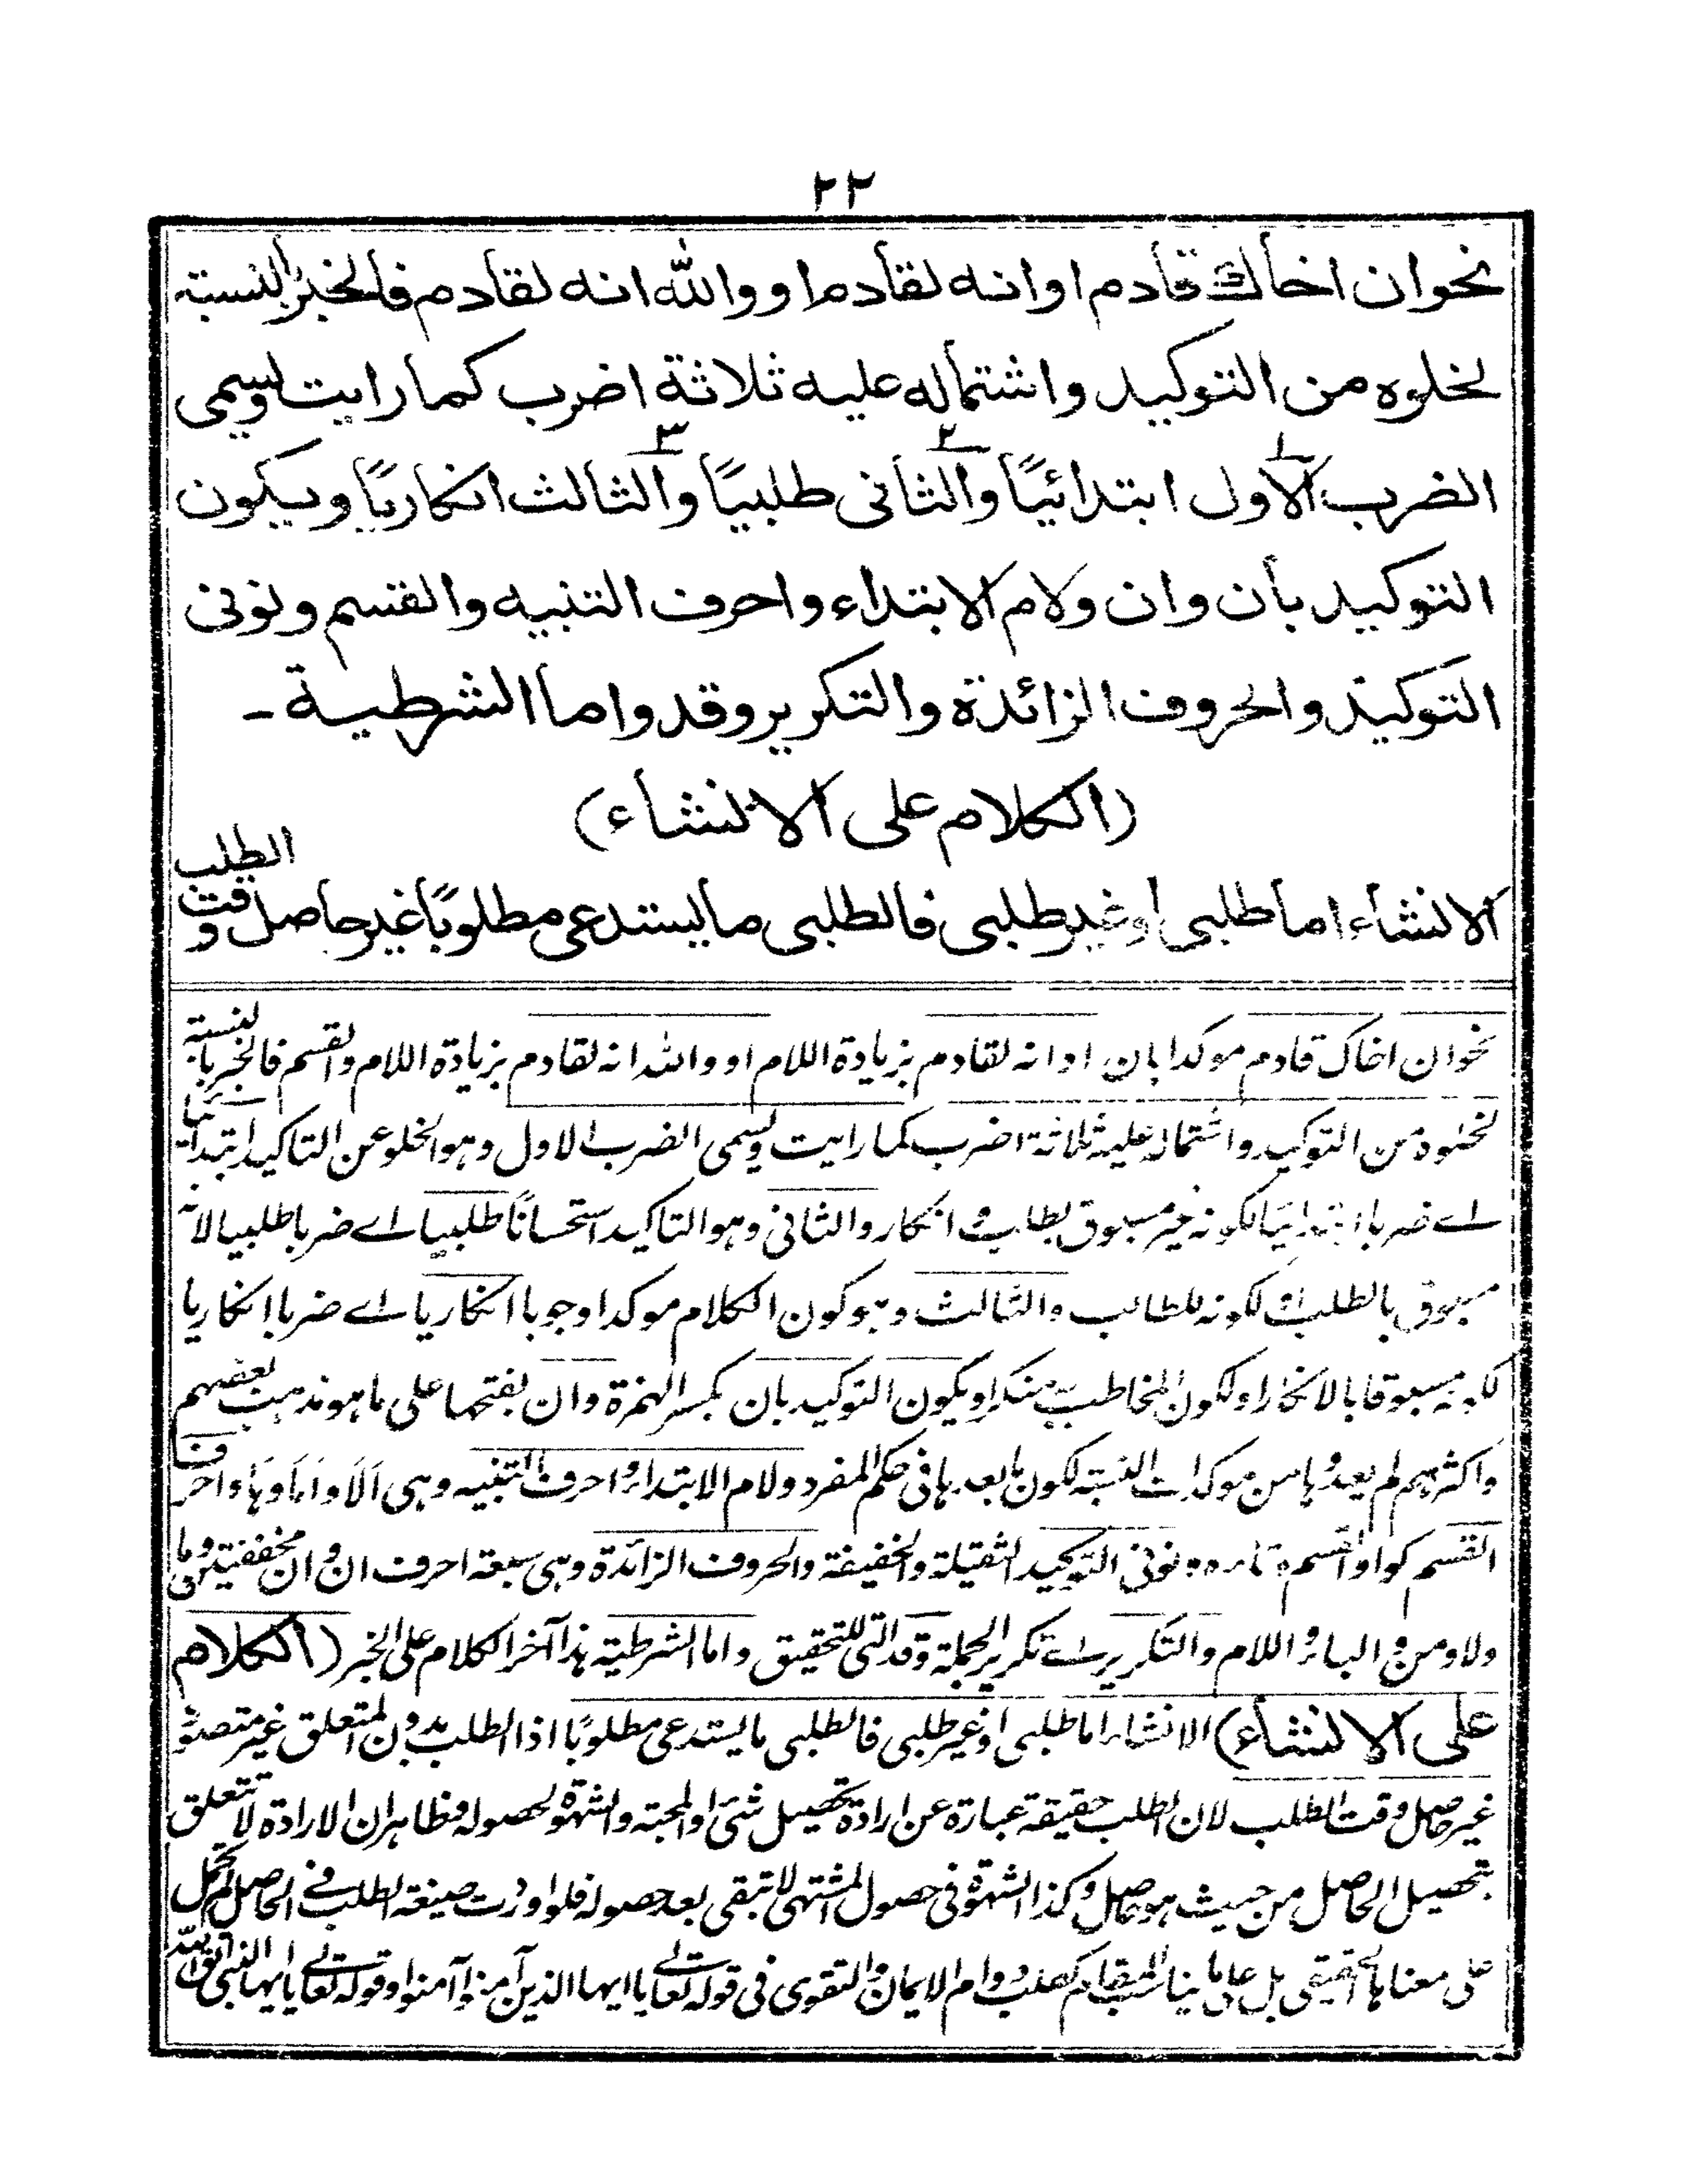 ٢٢
نحو ان اخاك قادم او انه لقادم او والله انه لقادم فالخبر بالنسبة
لخلوه من التوكيد واشتماله عليه ثلاثة اضرب كما رايت ويسمى
الضرب الاول ابتدائيًا والثانى طلبيًا والثالث انكاريًا ويكون
١ ٢ ٣
التوكيد بأن وان ولام الابتداء واحرف التنبيه والقسم ونونى
التوكيد والحروف الزائدة والتكرير وقد واما الشرطية -
(الكلام على الانشاء)
الانشاء اما طلبى او غير طلبى فالطلبى ما يستدعى مطلوبًا غير حاصل وقت الطلب
نحو ان اخاك قادم موكدا بان او انه لقادم بزيادة اللام او والله انه لقادم بزيادة اللام والقسم فالخبر بالنسبة
لخلوه من التوكيد واشتماله عليه ثلاثة اضرب كما رايت ويسمى الضرب الاول وهو الخلو عن التاكيد ابتدائيا
اے ضربا ابتدائيا لكونه غير مسبوق بطلب و انكار والثانى وهو التاكيد استحسانًا طلبيا اے ضربا طلبيا لانه
مسبوق بالطلب لكونه للطالب والثالث وهو كون الكلام موكدا وجوبا انكاريا اے ضربا انكاريا
لكونه مسبوقا بالانكار او لكون المخاطب منكرا ويكون التوكيد بان بكسر الهمزة وان بفتحها على ما هو مذهب بعضهم
واكثرهم لم يعدوها من موكدات النسبة لكون ما بعدها فى حكم المفرد ولام الابتداء واحرف التنبيه وهى اَلَا واَمَا وهَا واحرف
القسم كواو القسم ونونى التوكيد الثقيلة والخفيفة والحروف الزائدة وهى سبعة احرف ان وان مخففتين وما
ولا ومن والباء واللام والتكرير اے تكرير الجملة وقد التى للتحقيق واما الشرطية هذا آخر الكلام على الخبر (الكلام
على الانشاء) الانشاء اما طلبى او غير طلبى فالطلبى ما يستدعى مطلوبًا اذ الطلب بدون المتعلق غير متصور
غير حاصل وقت الطلب لان الطلب حقيقة عبارة عن ارادة تحصيل شئ او المحبة والشهوة لحصوله وظاهر ان الارادة لا تتعلق
بتحصيل الحاصل من حيث هو حاصل وكذا الشهوة فى حصول المشتهى لا تبقى بعد حصوله فلو اوردت صيغة الطلب فى الحاصل لم تحمل
على معناها الحقيقى بل على ما يناسب المقام كطلب دوام الايمان والتقوى فى قوله تعالے يا ايها الذين آمنوا آمنوا وقوله تعالے يا ايها النبى اتق الله